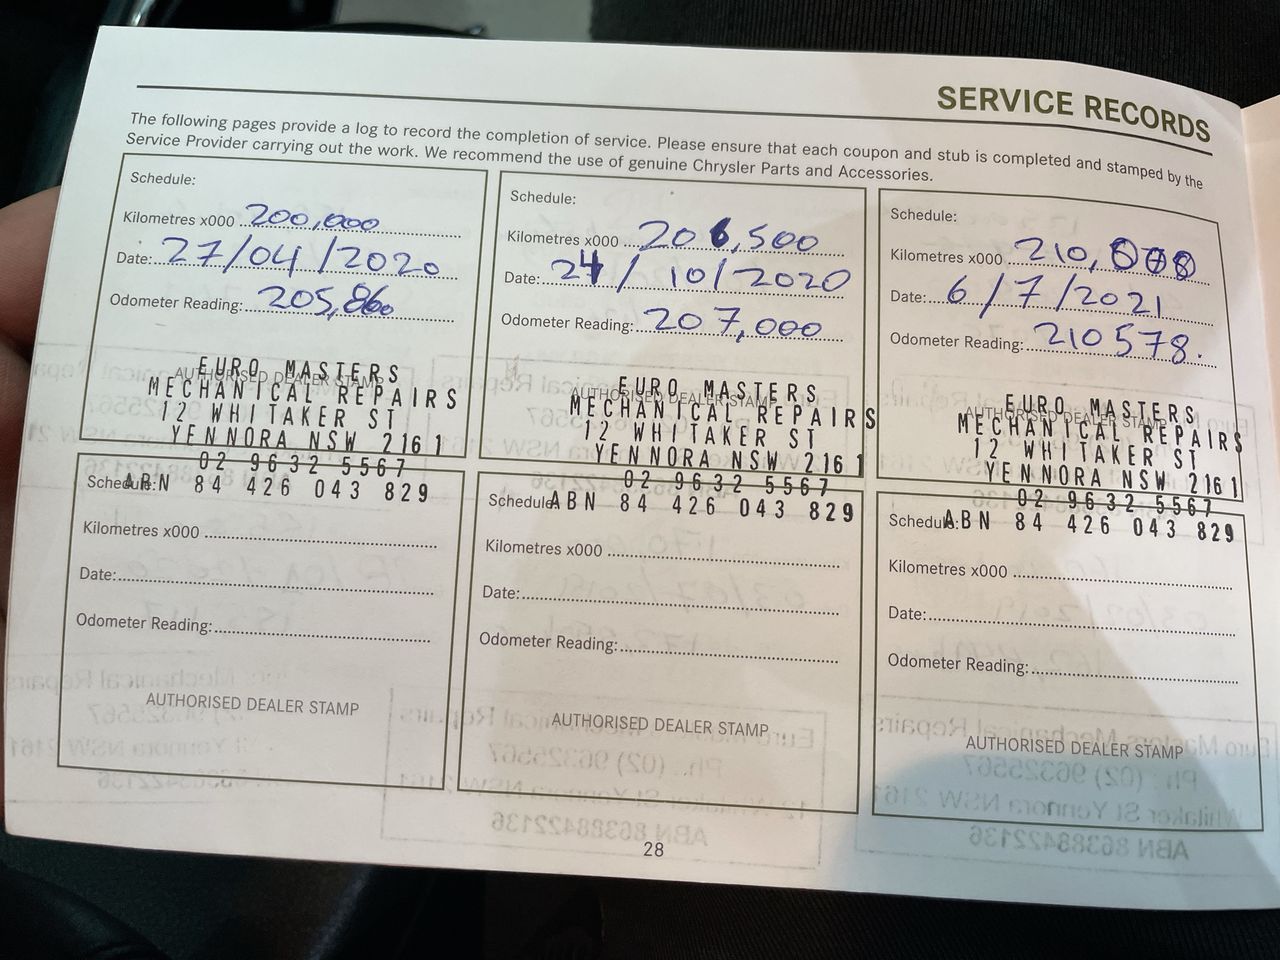 SERVICE RECORDS
The following pages provide a log to record the completion of service. Please ensure that each coupon and stub is completed and stamped by the
Service Provider carrying out the work. We recommend the use of genuine Chrysler Parts and Accessories.
Schedule:
Kilometres x000 200,000
Date: 27/04/2020
Odometer Reading: 205,860
AUTHORISED DEALER STAMP
EURO MASTERS
MECHANICAL REPAIRS
12 WHITAKER ST
YENNORA NSW 2161
02 9632 5567
ABN 84 426 043 829
Schedule:
Kilometres x000 206,500
Date: 24/10/2020
Odometer Reading: 207,000
AUTHORISED DEALER STAMP
EURO MASTERS
MECHANICAL REPAIRS
12 WHITAKER ST
YENNORA NSW 2161
02 9632 5567
ABN 84 426 043 829
Schedule:
Kilometres x000 210,
Date: 6/7/2021
Odometer Reading: 210578.
AUTHORISED DEALER STAMP
EURO MASTERS
MECHANICAL REPAIRS
12 WHITAKER ST
YENNORA NSW 2161
02 9632 5567
ABN 84 426 043 829
Schedule:
Kilometres x000
Date:
Odometer Reading:
AUTHORISED DEALER STAMP
Schedule:
Kilometres x000
Date:
Odometer Reading:
AUTHORISED DEALER STAMP
Schedule:
Kilometres x000
Date:
Odometer Reading:
AUTHORISED DEALER STAMP
28